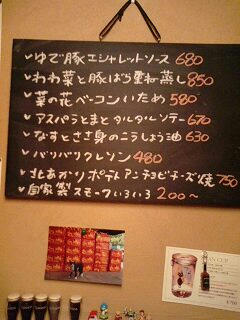 ゆで豚エシャレットソース 680
わわ菜と豚ばら重ね蒸し 850
菜の花ベーコンいため 580
アスパラとまとタルタルソテー 670
なすとささ身のこうしょう油 630
バリバリクレソン 480
北あかりポテトアンチョビチーズ焼 750
自家製スモークいろいろ 200〜
AN CUP